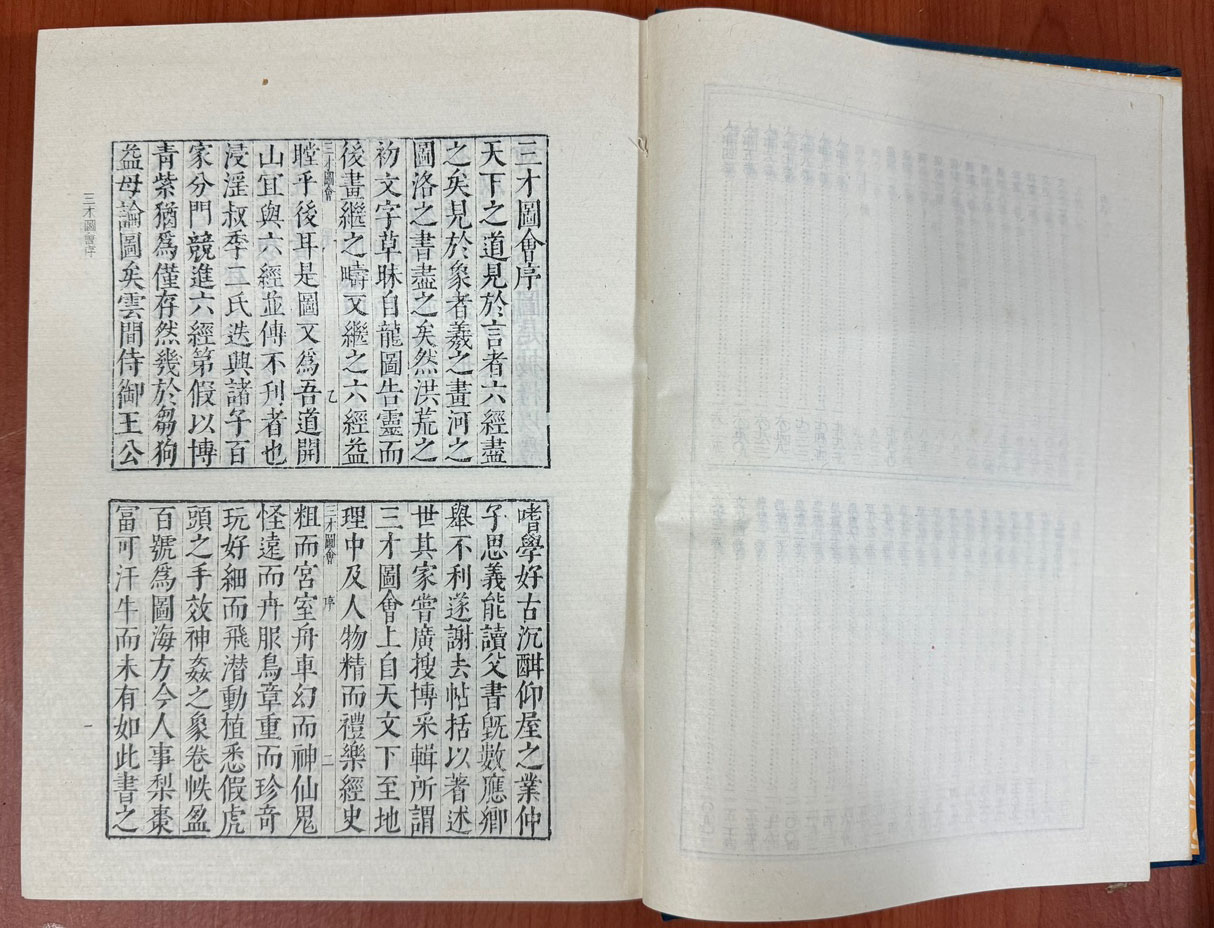 三才圖會序
天下之道見於言者六經盡
之矣見於象者羲之畫河之
圖洛之書盡之矣然洪荒之
初文字草昧自龍圖告靈而
後畫繼之疇又繼之六經益
三才圖會 乙
瞠乎後耳是圖又爲吾道開
山宜與六經並傳不刋者也
浸淫叔季二氏迭興諸子百
家分門競進六經第假以博
青紫猶爲僅存然幾於芻狗
益毋論圖矣雲間侍御王公
嗜學好古沉酣仰屋之業仲
子思義能讀父書旣數應鄉
舉不利遂謝去帖括以著述
世其家嘗廣搜博采輯所謂
三才圖會上自天文下至地
理中及人物精而禮樂經史
三才圖會 序 二
粗而宮室舟車幻而神仙鬼
怪遠而卉服鳥章重而珍奇
玩好細而飛潛動植悉假虎
頭之手效神姦之象卷帙盈
百號爲圖海方今人事梨棗
冨可汗牛而未有如此書之
三才圖會序
一